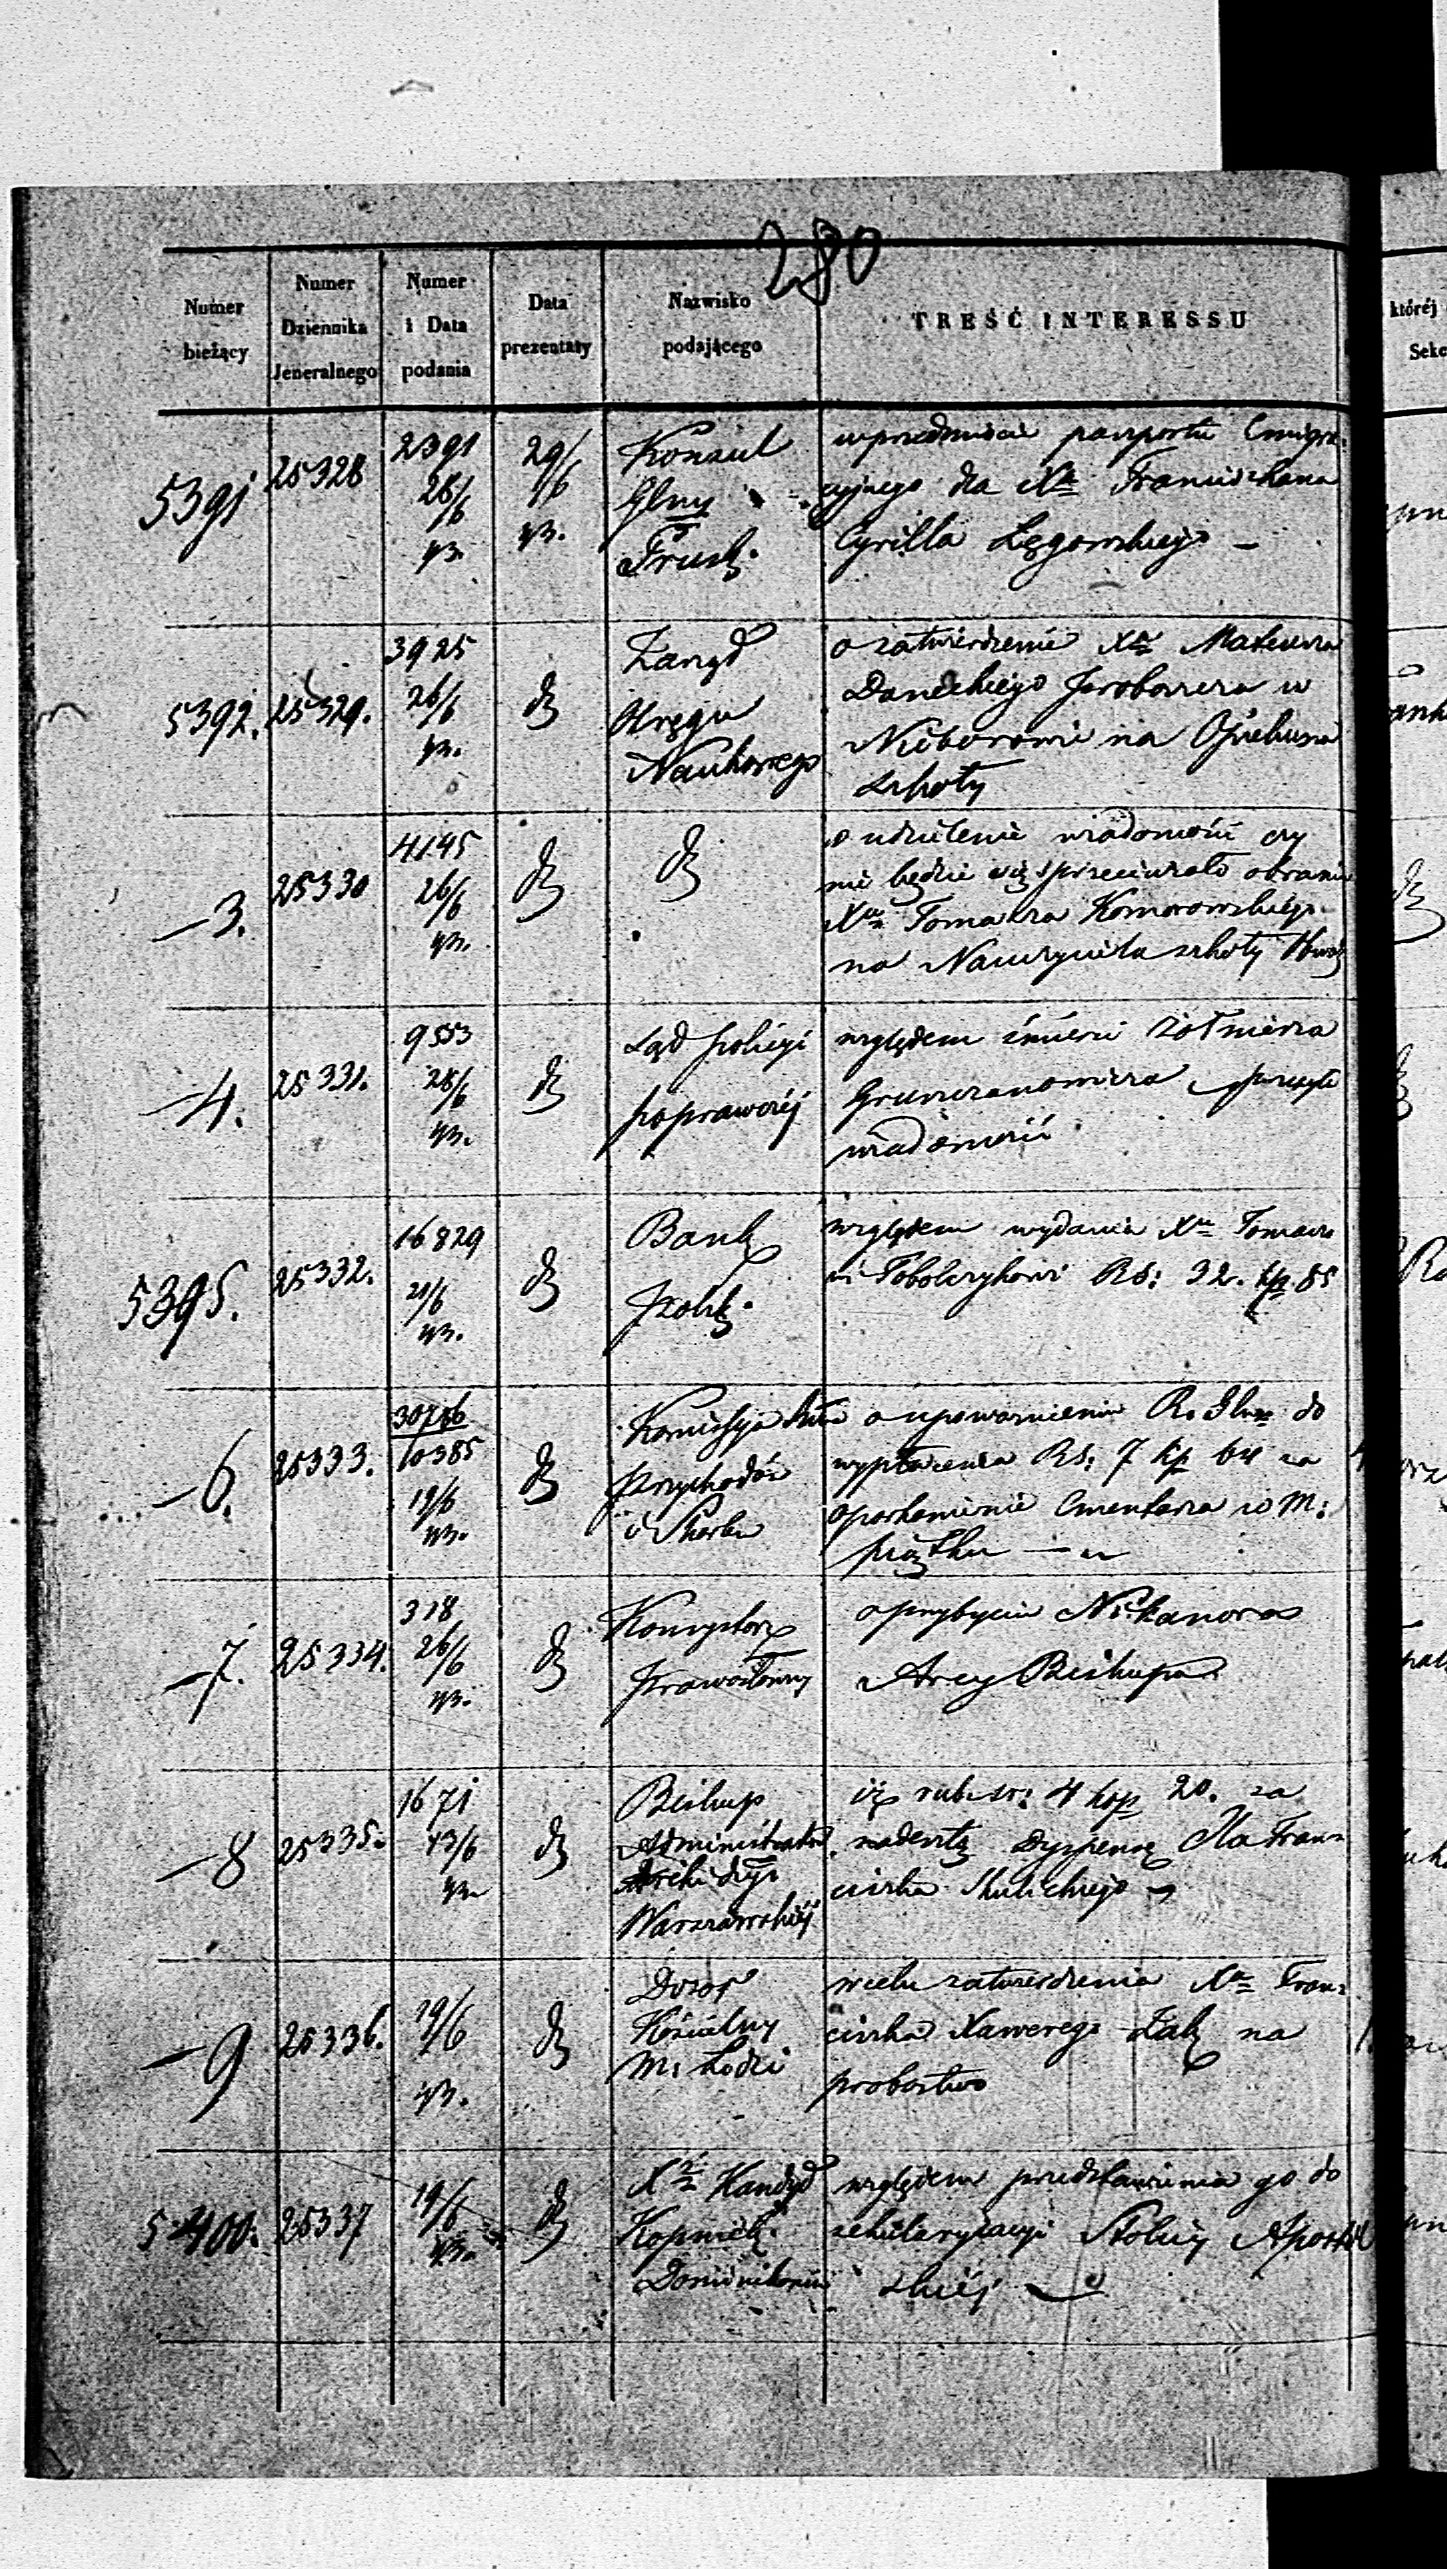 280
Numer bieżący
Numer Dziennika Jeneralnego
Numer i Data podania
Data prezentaty
Nazwisko podającego
TREŚĆ INTERESSU
5391
25328
2391
28/6
29/6
Konsul
Glny
Prusk.
w przedmiocie paszportu Emigra-
cyjnego dla Xa Franciszkana
Cyrilla Łęgowskiego —
5392.
25329.
3925
26/6
Zarząd
Okręgu
Naukowego
o zatwierdzenie Xa Mateusza
Daneckiego proboszcza w
Nieborowie na Opiekuna
szkoły
—3.
25330
4145
26/6
o udzielenie wiadomości czy
nie będzie się sprzeciwiało obranie
Xa Tomasza Komorowskiego
na Nauczyciela szkoły
—4.
25331.
9553
28/6
Sąd policyi
poprawczéj
względem śmierci żołnierza
wiadomość
5395.
25332.
16829
21/6
Bank
Polsk.
względem wydania Xu Tomaszo
wi Tobolczykowi Rs: 32. kp. 85
—6.
25333.
30786
10385
19/6
Komissyja
Przychodów
i Skarbu
o upoważnienie R. Glnego do
wypłacenia Rs: 7 kp 64 za
oparkanienie Cmentarza w M:
Piątku —
—7.
25334.
318
26/6
Konsystorz
Prawosławny
o przybyciu Nikanora
Arcy Biskupa.
—8
25335.
1671
13/6
Biskup
Administrator
Archi dyje
Warszawskiéj
iż rub. sr: 4 kop 20. za
nadeszłą dyspensę dla Fran-
ciszka
—9
25336.
19/6
Dozór
Kościelny
M: Łodzi
w celu zatwierdzenia Xa Fran-
ciszka Xawerego Żak na
probostwo
5400.
25337
19/6
Xdz Kandyd
Dominikanin
względem przedstawienia go do
sekularyzacyi Stolicy Apostol
skiéj —
któréj
Sekc